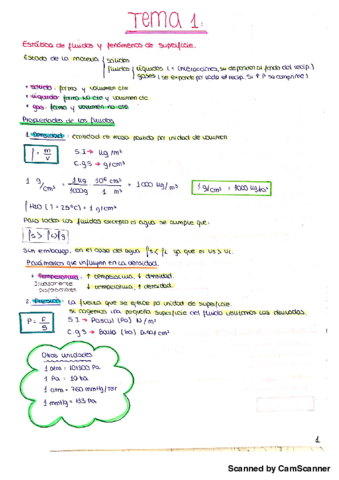 TEMA 1:
Estática de fluidos y fenómenos de superficie.
Estado de la materia sólidos
fluidos líquidos (+ interacciones, se depositan al fondo del recip.)
gases (se expande por todo el recip. Si ↑ P se comprime)
+ sólido: forma y volumen cte
+ líquido: forma no cte y volumen cte
+ gas: forma y volumen no cte
Propiedades de los fluidos
1. Densidad: cantidad de masa por unidad de volumen
ρ = m/V S.I → kg/m³
c.g.s → g/cm³
1 g/cm³ = 1 kg/1000g · 10⁶ cm³/1 m³ = 1000 kg/m³ 1 g/cm³ = 1000 kg/m³
ρ H₂O (T = 25ºC) = 1 g/cm³
Para todos los fluidos excepto el agua se cumple que:
ρs > ρl > ρg
Sin embargo, en el caso del agua ρs < ρL ya que el Vs > VL.
Parámetros que influyen en la densidad.
+ Temperatura: ↑ temperatura, ↓ densidad.
Inversamente proporcionales ↓ temperatura, ↑ densidad.
2. Presión: La fuerza que se ejerce por unidad de superficie.
Si cogemos una pequeña superficie del fluido usaremos las derivadas.
P = F/S S.I → Pascal (Pa) N/m²
c.g.s → Baria (ba) Dina/cm²
Otras unidades
1 atm = 101300 Pa
1 Pa = 10 ba
1 atm = 760 mmHg/torr
1 mmHg = 133 Pa
1
Scanned by CamScanner